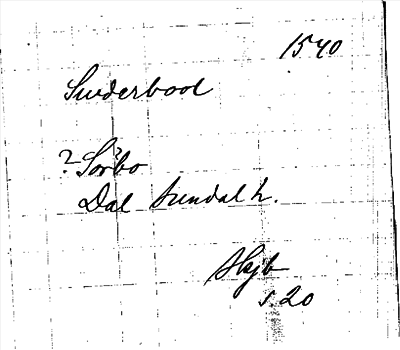 1540
Suderbool
? Sörbo
Dal Sundal h.
Hsjb
s. 20